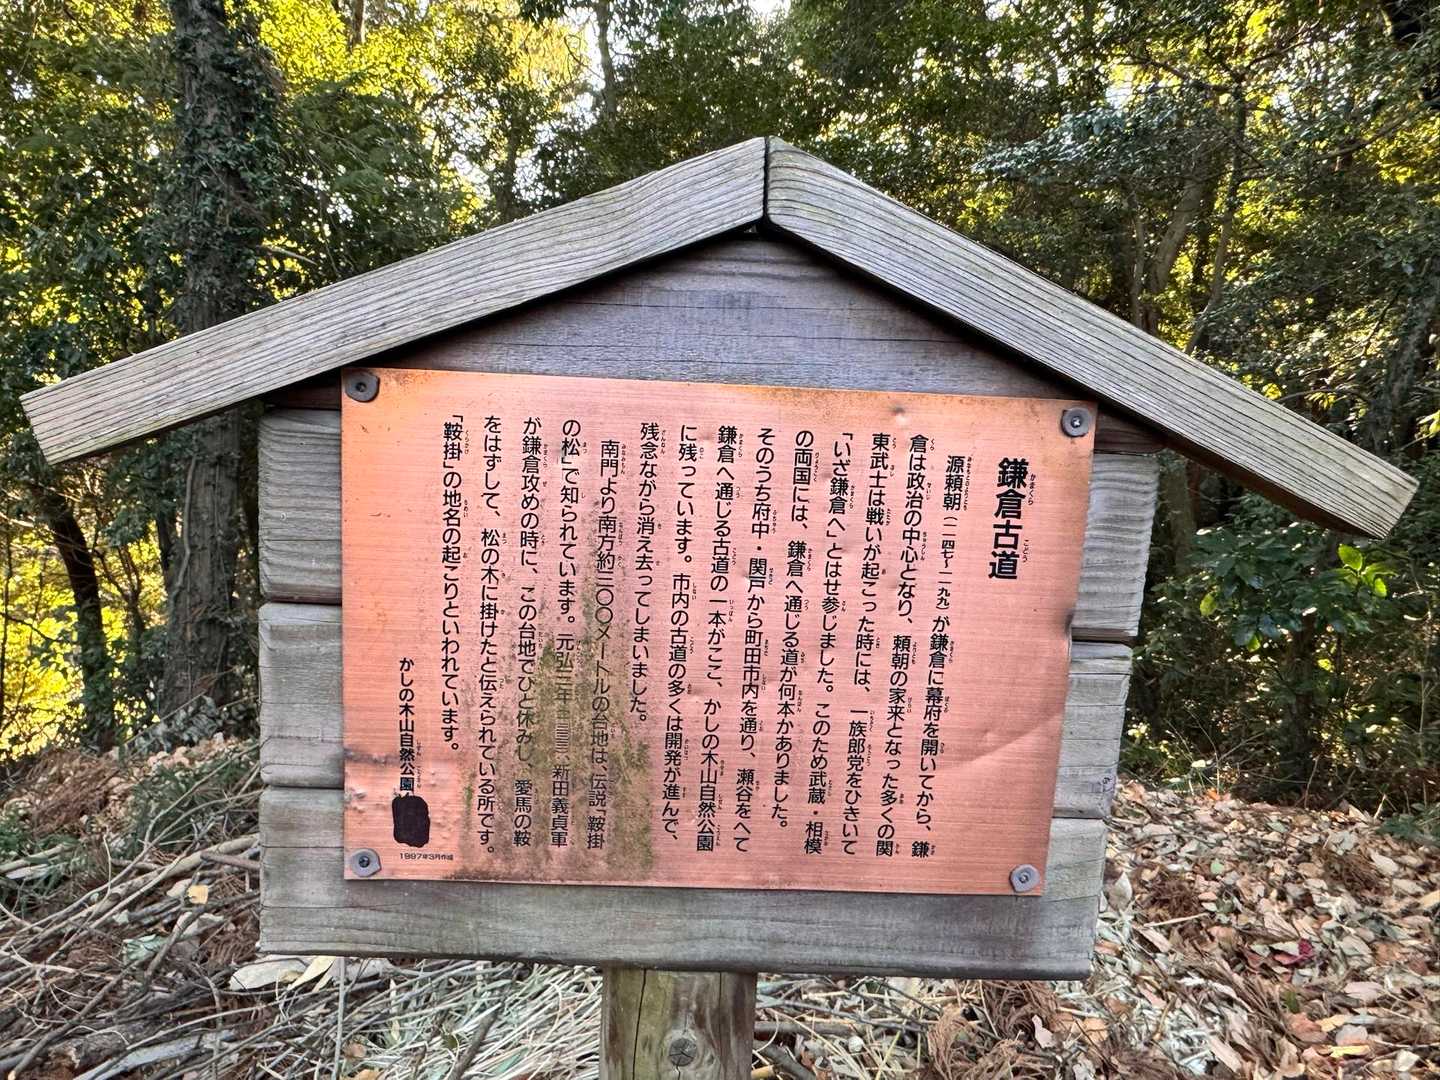 鎌倉古道
源頼朝(一一四七〜一一九九)が鎌倉に幕府を開いてから、鎌
倉は政治の中心となり、頼朝の家来となった多くの関
東武士は戦いが起こった時には、一族郎党をひきいて
「いざ鎌倉へ」とはせ参じました。このため武蔵・相模
の両国には、鎌倉へ通じる道が何本かありました。
そのうち府中・関戸から町田市内を通り、瀬谷をへて
鎌倉へ通じる古道の一本がここ、かしの木山自然公園
に残っています。市内の古道の多くは開発が進んで、
残念ながら消え去ってしまいました。
南門より南方約三〇〇メートルの台地は、伝説「鞍掛
の松」で知られています。元弘三年 新田義貞軍
が鎌倉攻めの時に、この台地でひと休みし、愛馬の鞍
をはずして、松の木に掛けたと伝えられている所です。
「鞍掛」の地名の起こりといわれています。
かしの木山自然公園
1997年3月作成